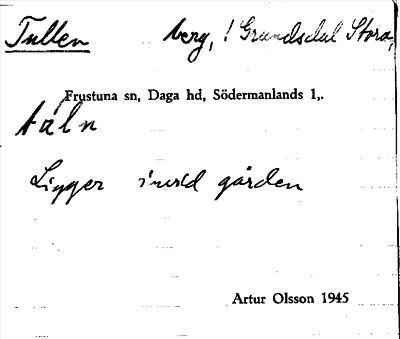 Tullen berg, ! Grundsdal Stora,
Frustuna sn, Daga hd, Södermanlands l,.
täln
Ligger invid gården
Artur Olsson 1945